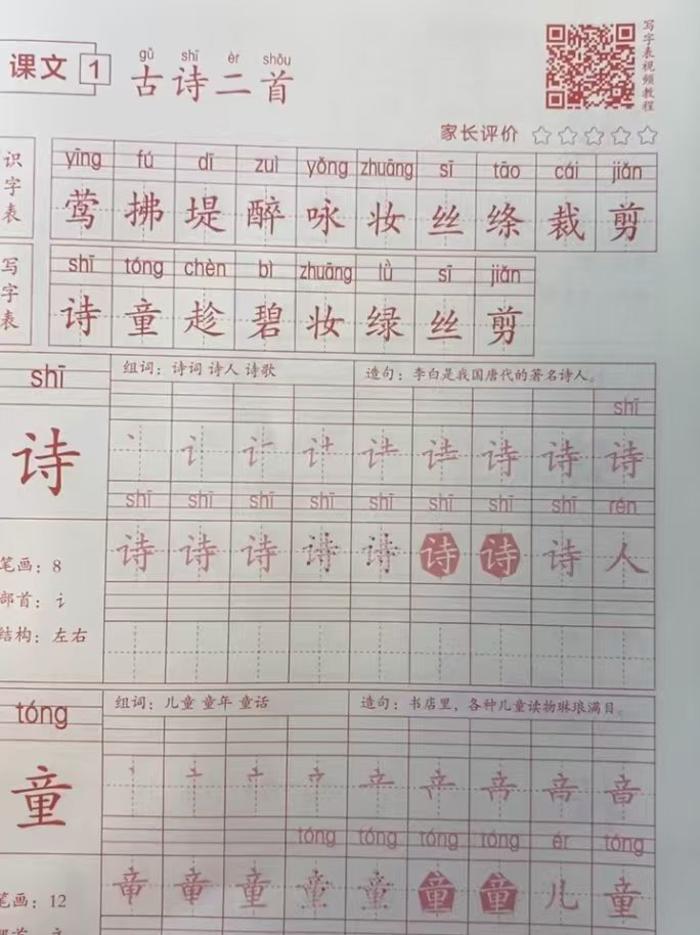 gǔ shī èr shǒu
课文 1 古诗二首
写字表视频教程
家长评价
识字表
yīng fú dī zuì yǒng zhuāng sī tāo cái jiǎn
莺 拂 堤 醉 咏 妆 丝 绦 裁 剪
写字表
shī tóng chèn bì zhuāng lǜ sī jiǎn
诗 童 趁 碧 妆 绿 丝 剪
shī
组词：诗词 诗人 诗歌 造句：李白是我国唐代的著名诗人。
shī
诗
诗 诗 诗
shī shī shī shī shī shī shī shī rén
诗 诗 诗 诗 诗 诗 诗 诗 人
笔画：8
部首：讠
结构：左右
tóng
组词：儿童 童年 童话 造句：书店里，各种儿童读物琳琅满目。
童
tóng tóng tóng tóng ér tóng
童 童 童 童 童 童 儿 童
笔画：12